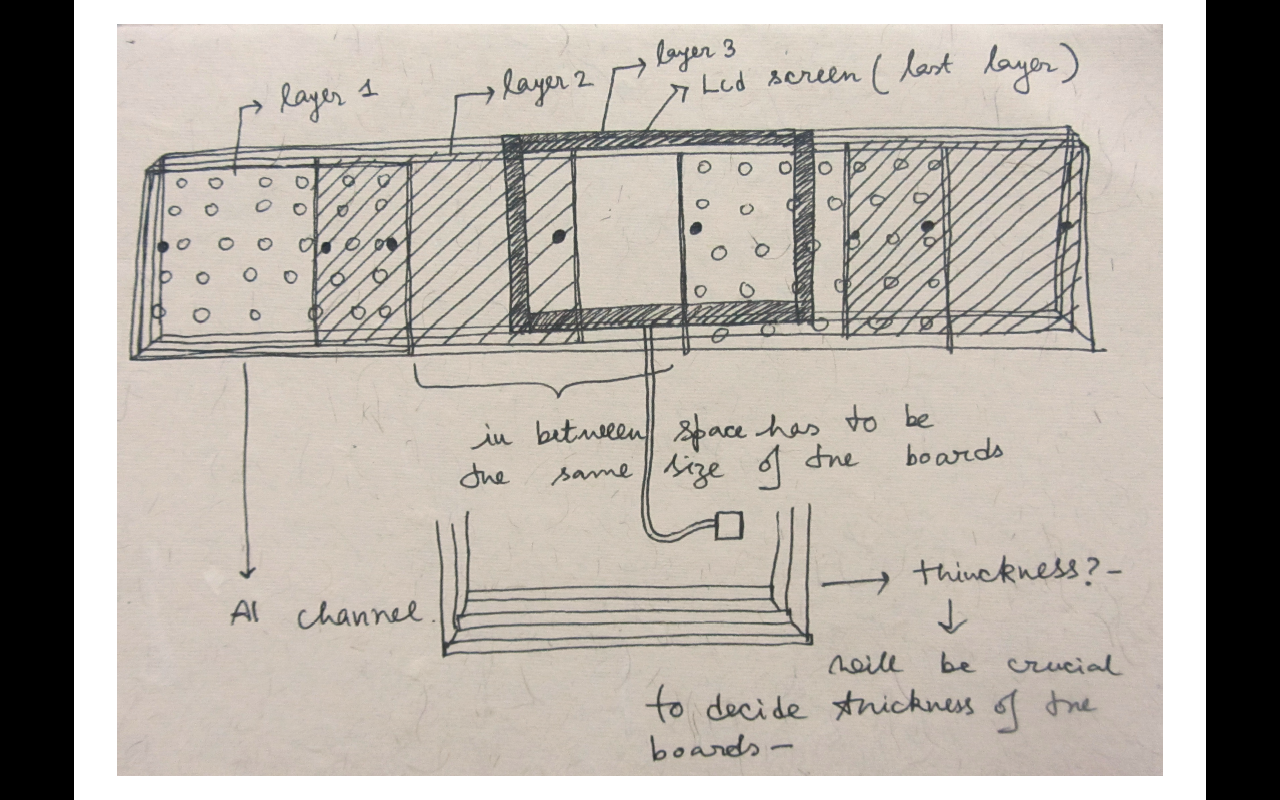 layer 3
layer 1
layer 2
Lcd screen ( last layer )
in between space has to be
the same size of the boards
Al channel.
thinckness? -
will be crucial
to decide thickness of the
boards -